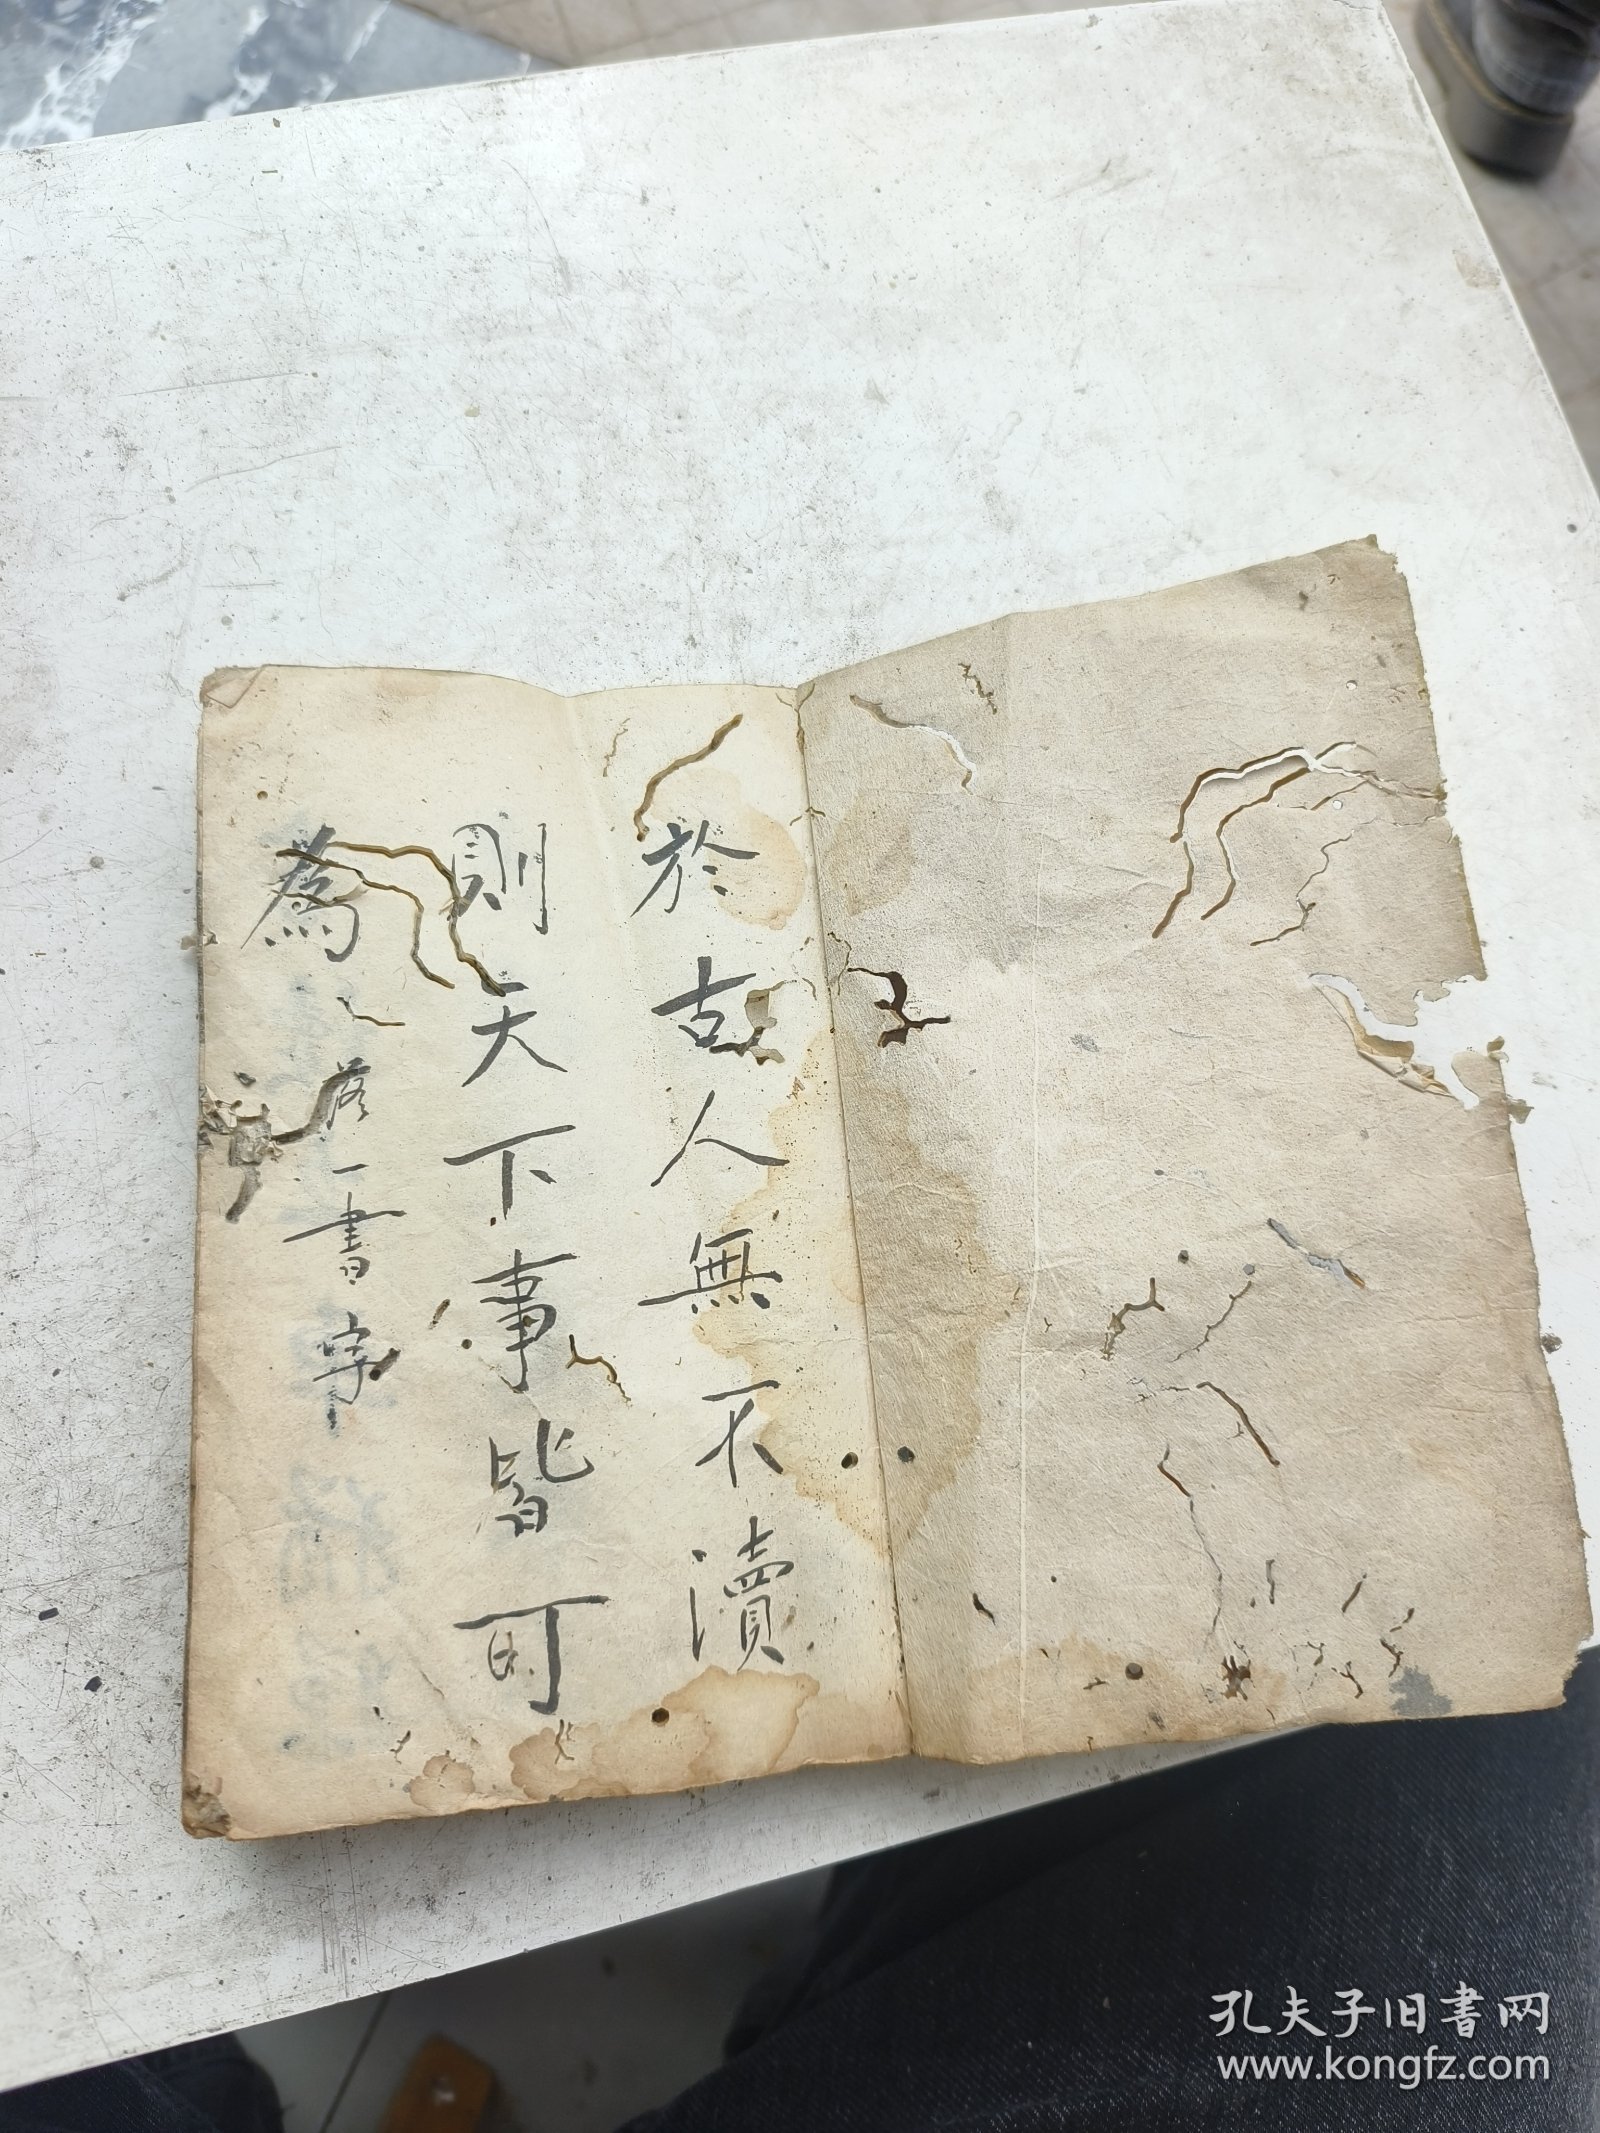 於古人無不瀆
則天下事皆可
為
落一書字
孔夫子旧書网
www.kongfz.com